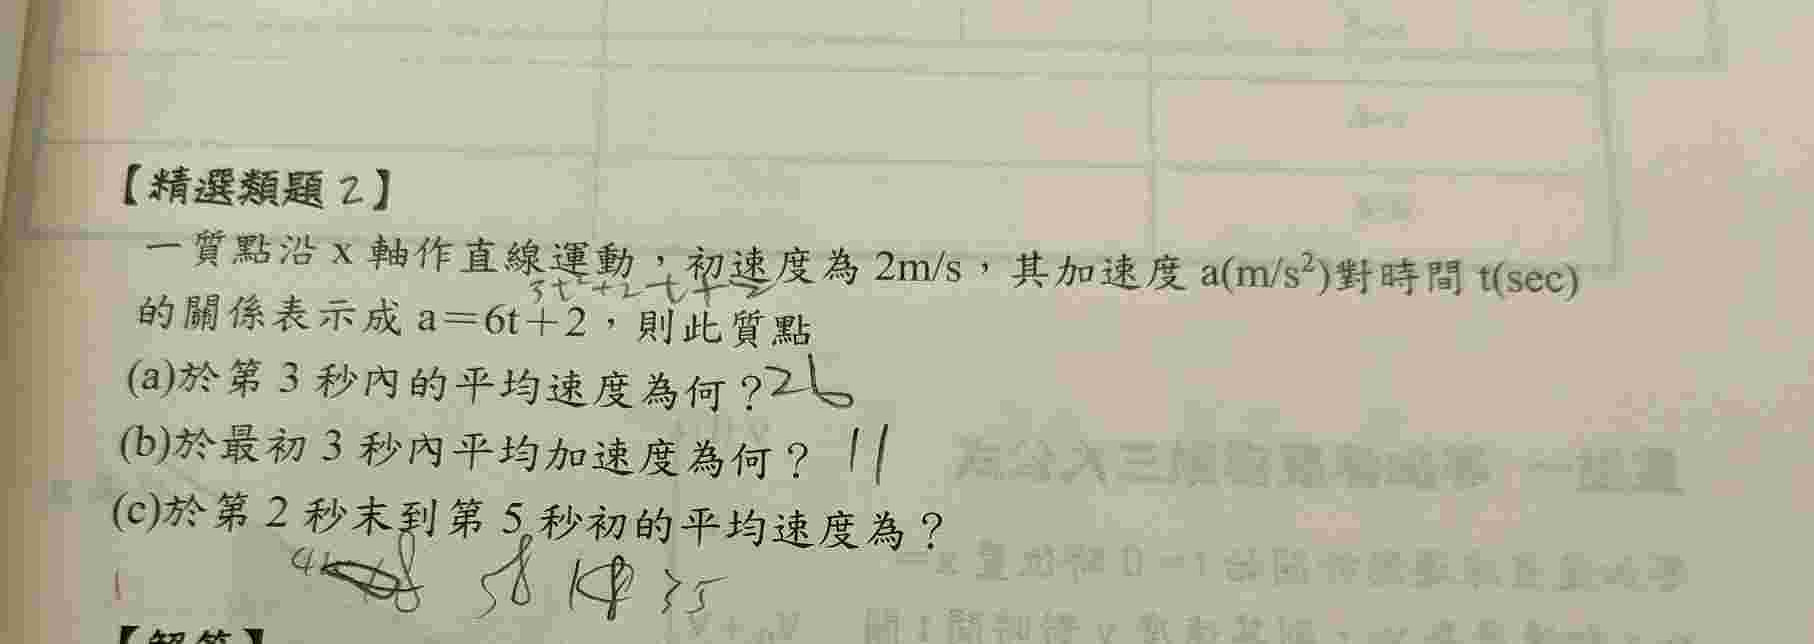 【精選類題2】
一質點沿 x 軸作直線運動,初速度為 2m/s,其加速度 a(m/s²)對時間 t(sec)
3t²+2t+2
的關係表示成 a=6t+2,則此質點
(a)於第 3 秒內的平均速度為何?26
(b)於最初 3 秒內平均加速度為何? 11
(c)於第 2 秒末到第 5 秒初的平均速度為?
58 35
【解答】